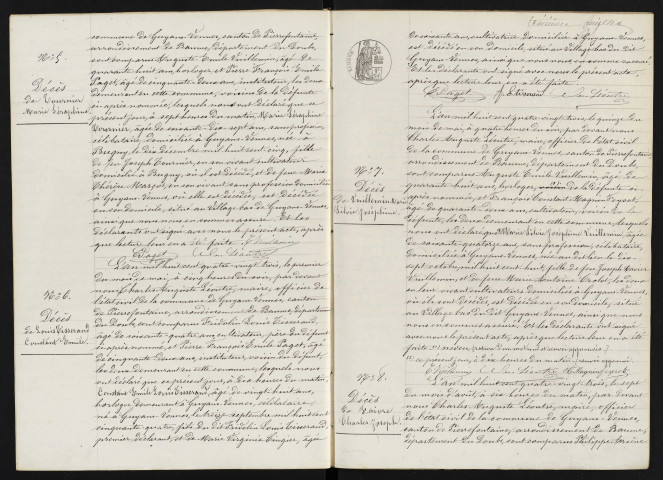 commune de Guyans-Vennes, canton de Pierrefontaine,
arrondissement de Baume, département du Doubs,
sont comparus Auguste Emile Vuillemin, âgé de
quarante huit ans, horloger, et Pierre François Emile
Paget, âgé de cinquante deux ans, instituteur, les deux
demeurant en cette commune, voisins de la défunte
ci-après nommée, lesquels nous ont déclaré que ce
présent jour, à sept heures du matin, Marie Séraphine
Tournier, âgée de soixante dix sept ans, sans profession,
célibataire, domiciliée à Guyans-Vennes, née à
le dix décembre mil huit cent cinq, fille
de feu Joseph Tournier, en son vivant cultivateur
domicilié à et de feue Marie
Thérèse en son vivant sans profession domiciliée
à Guyans-Vennes, où elle est décédée, est décédée
en son domicile, situé au village bas de Guyans-Vennes,
ainsi que nous nous en sommes assuré. Et les
déclarants ont signé avec nous le présent acte, après
que lecture leur en a été faite.
Paget
N° 5.
Décès
De Tournier
Marie Séraphine
L'an mil huit cent quatre-vingt trois, le premier
du mois de mai, à cinq heures du soir, par devant
nous Charles Auguste maire, officier de
l'état civil de la commune de Guyans-Vennes, canton
de Pierrefontaine, arrondissement de Baume, département
du Doubs, sont comparus Fridolin Louis Tisserand,
âgé de soixante quatre ans, cultivateur, père du défunt
ci-après nommé, et Pierre François Emile Paget, âgé
de cinquante deux ans, instituteur, voisin du défunt,
les deux demeurant en cette commune, lesquels nous
ont déclaré que ce présent jour, à dix heures du matin,
Constant Emile Louis Tisserand, âgé de vingt huit ans,
horloger demeurant à Guyans-Vennes, célibataire,
né à Guyans-Vennes, le septembre mil huit cent
cinquante quatre, fils du dit Fridolin Louis Tisserand,
premier déclarant, et de Marie Virginie âgée
N° 6.
Décès
De Louis Tisserand
Constant Emile
de soixante ans, cultivatrice domiciliée à Guyans-Vennes,
est décédé en son domicile, situé au village bas du dit
Guyans-Vennes, ainsi que nous nous en sommes assuré.
Et les déclarants ont signé avec nous le présent acte,
après que lecture leur en a été faite.
E. Paget
L'an mil huit cent quatre-vingt trois, le quinze du
mois de mai, à quatre heures du soir, par devant nous
Charles Auguste maire, officier de l'état civil
de la commune de Guyans-Vennes, canton de Pierrefontaine,
arrondissement de Baume, département du Doubs,
sont comparus Auguste Emile Vuillemin, âgé de
quarante huit ans, horloger, de la défunte ci-
après nommée, et François Constant
âgé de quarante deux ans, cultivateur, voisin de la
défunte, les deux demeurant en cette commune, lesquels
nous ont déclaré que Marie Silvie Joséphine Vuillemin, âgée
de soixante quatorze ans, sans profession, célibataire,
domiciliée à Guyans-Vennes, née au dit lieu le dix
sept octobre mil huit cent huit, fille de feu Joseph Xavier
Vuillemin, et de feue Marie Antoine de
leur vivant cultivateurs domiciliés à Guyans-Vennes,
où ils sont décédés, est décédée en son domicile, situé
au village bas du dit Guyans-Vennes, ainsi que nous
nous en sommes assuré. Et les déclarants ont signé
avec nous le présent acte, après que lecture leur en a été
faite.
ce présent jour, à dix heures du matin, renvoi approuvé.
N° 7.
Décès
De Vuillemin Marie
Silvie Joséphine
L'an mil huit cent quatre-vingt trois, le sept
du mois d'août, à dix heures du matin, par devant
nous Charles Auguste maire, officier
de l'état civil de la commune de Guyans-Vennes,
canton de Pierrefontaine, arrondissement de Baume,
département du Doubs, sont comparus Philippe
N° 8.
Décès
De Faivre
Charles Joseph